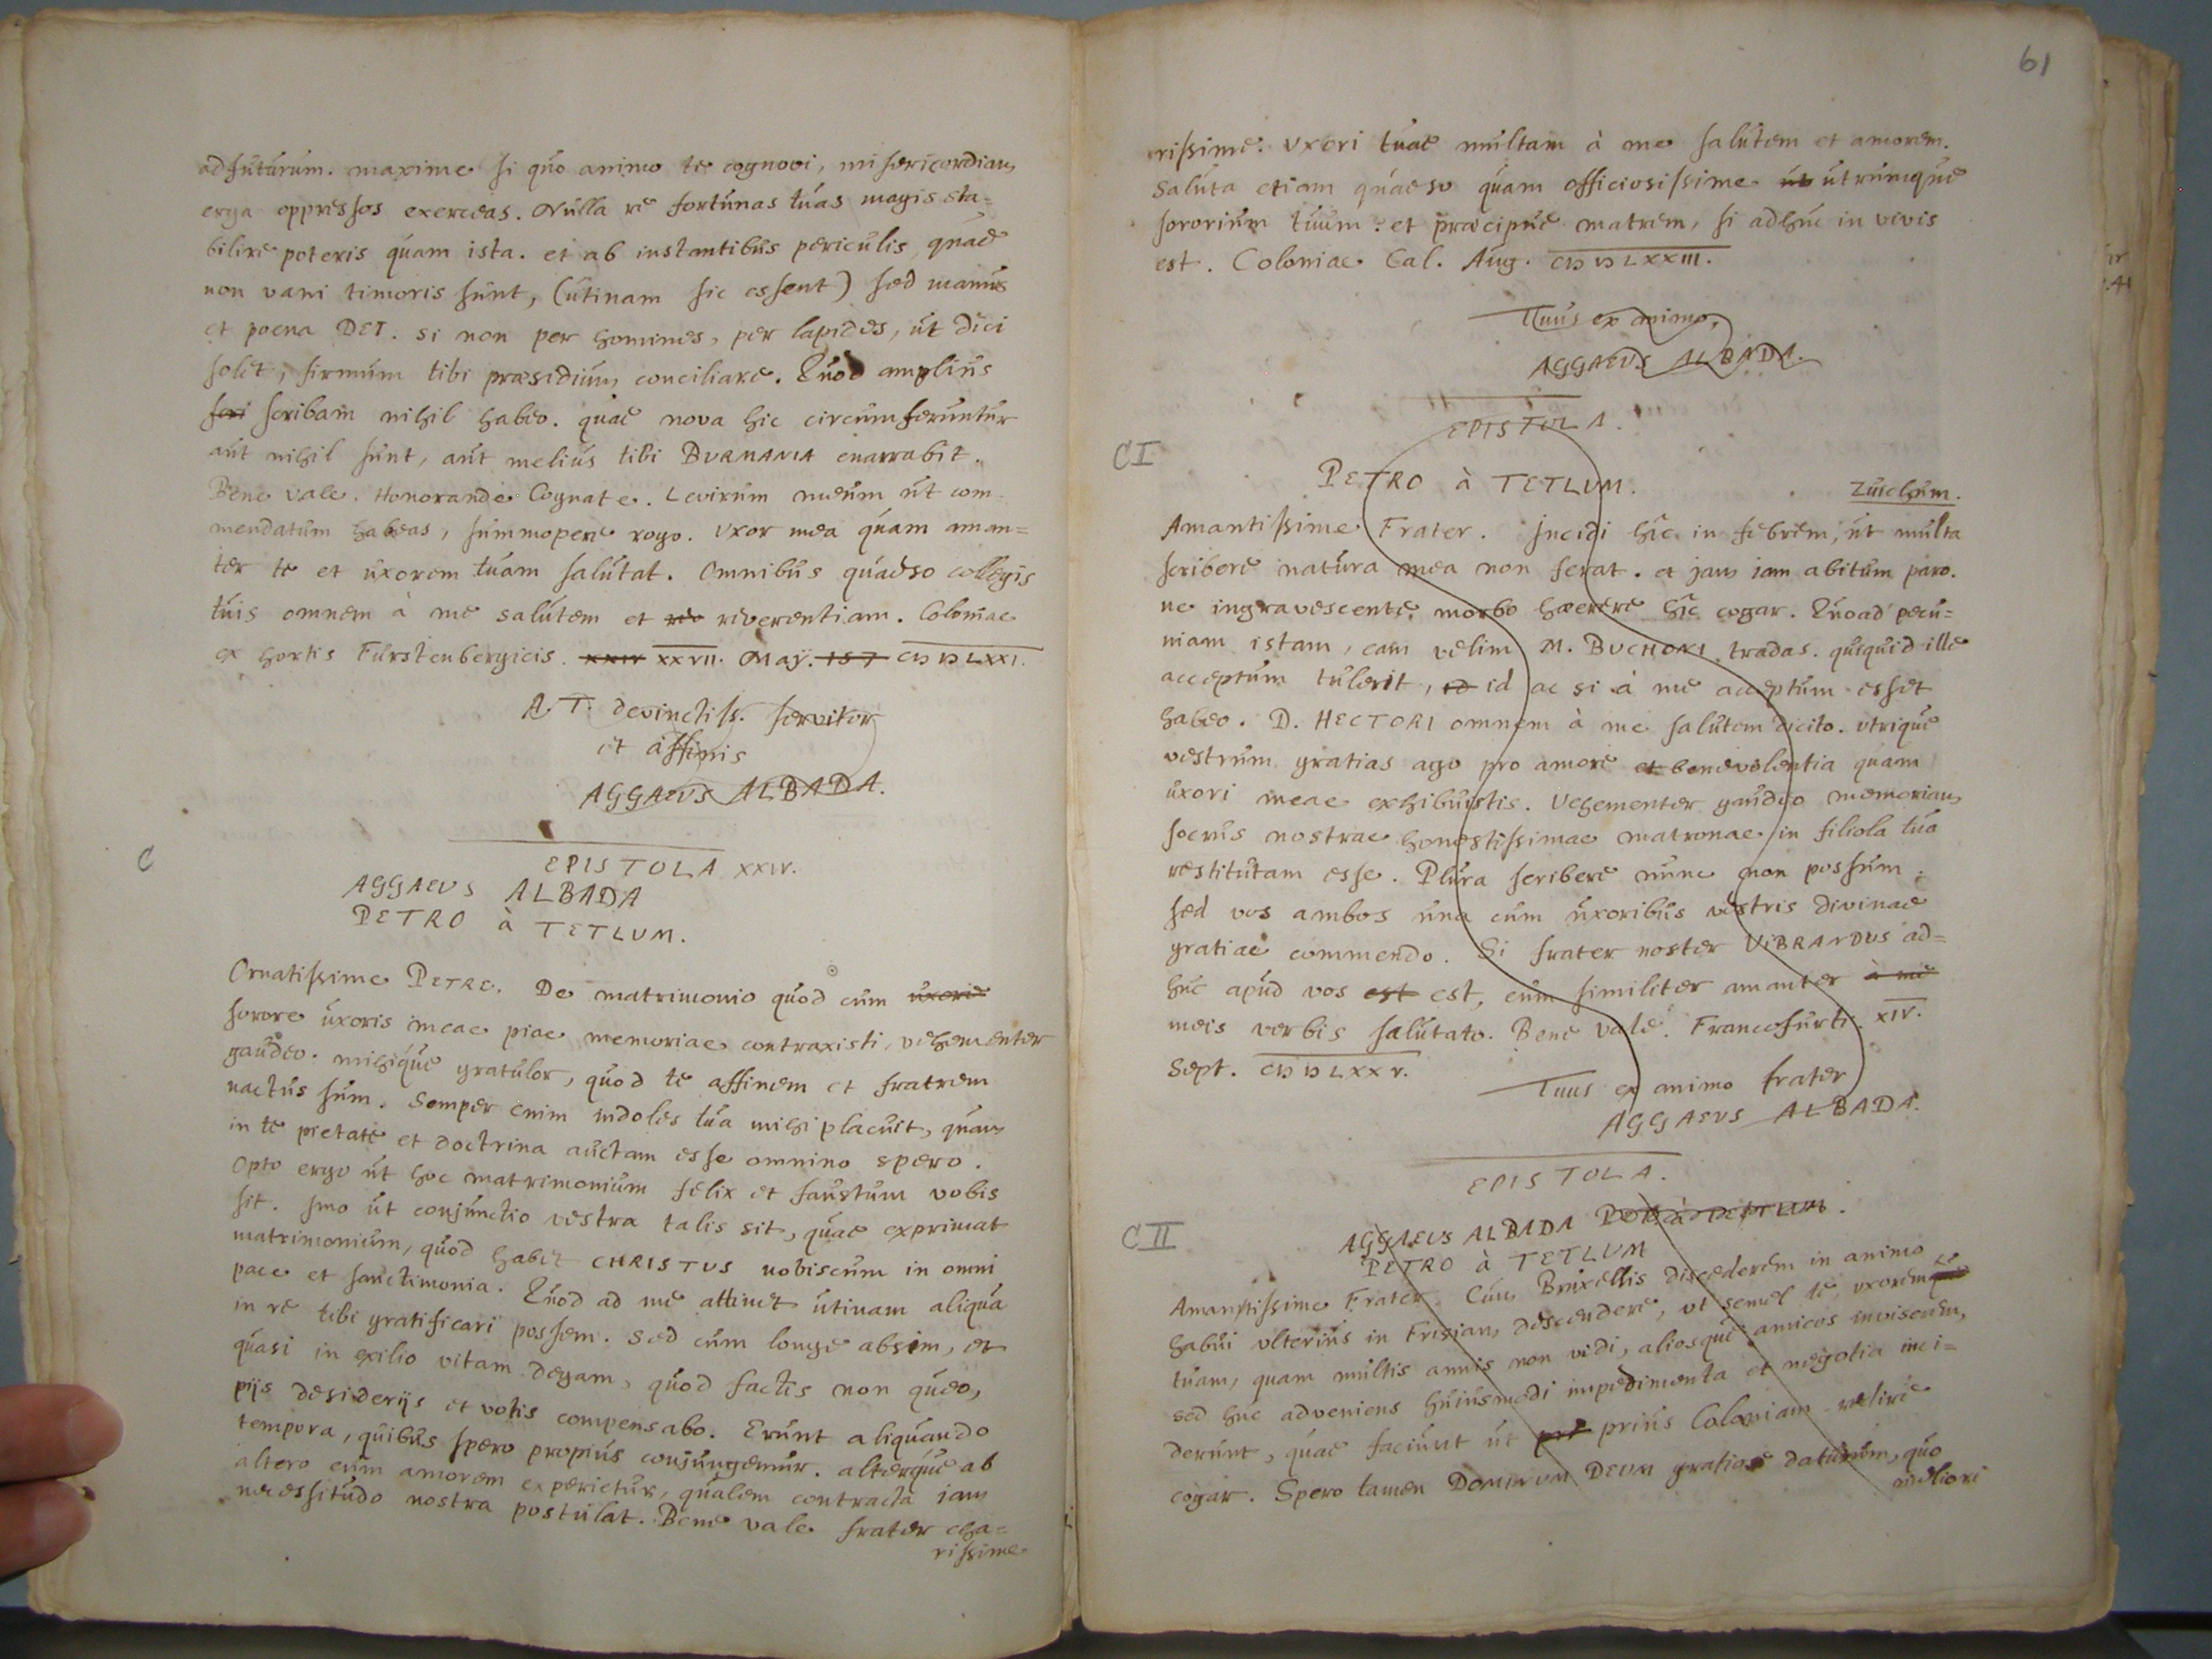 adfuturum. maxime si quo animo te cognovi, misericordiam
erga oppressos exerceas. Nulla re fortunas tuas magis sta-
bilire poteris quam ista. et ab instantibus periculis, quae
non vani timoris sunt, (utinam sic essent) sed manus
et poena DEI. si non per homines, per lapides, ut dici
solet, firmum tibi praesidium conciliare. Quod amplius
scri scribam nihil habeo. quae nova hic circumferuntur
aut nihil sunt, aut melius tibi BURMANIA enarrabit.
Bene vale. Honorande Cognate. Levirum meum ut com-
mendatum habeas, summopere rogo. Uxor mea quam aman=
ter te et uxorem tuam salutat. Omnibus quaeso collegis
tuis omnem à me salutem et re reverentiam. Coloniae
ex hortis Furstenbergicis. XXIV XXVII. Maÿ. 157 CIƆ IƆ LXXI.
A. T. devinctiss. servitor
et affinis
AGGAEUS ALBADA.
C
EPISTOLA XXIV.
AGGAEUS ALBADA
PETRO à TETLUM.
Ornatissime PETRE. De matrimonio quod cum uxoris
sorore uxoris meae piae memoriae contraxisti, vehementer
gaudeo. mihique gratulor, quod te affinem et fratrem
nactus sum. Semper enim indoles tua mihi placuit, quam
in te pietate et doctrina auctam esse omnino spero.
Opto ergo ut hoc matrimonium felix et faustum vobis
sit. Imo ut conjunctio vestra talis sit, quae exprimat
matrimonium, quod habet CHRISTUS nobiscum in omni
pace et sanctimonia. Quod ad me attinet utinam aliqua
in re tibi gratificari possem. Sed cum longe absim, et
quasi in exilio vitam degam, quod factis non queo,
pijs desiderijs et votis compensabo. Erunt aliquando
tempora, quibus spero propius conjungemur. alterque ab
altero eum amorem experietur, qualem contracta iam
necessitudo nostra postulat. Bene vale frater cha=
rissime
61
rissime. Uxori tuae multam à me salutem et amorem.
Saluta etiam quaeso quam officiosissime ut utrumque
sororium tuum: et praecipue matrem, si adhuc in vivis
est. Coloniae Cal. Aug. CIƆ IƆ LXXIII.
Tuus ex animo,
AGGAEUS ALBADA.
EPISTOLA.
CI
PETRO à TETLUM.
Zuichum.
Amantissime Frater. Incidi hîc in febrem, ut multa
scribere natura mea non ferat. et jam iam abitum paro.
ne ingravescente morbo haerere hîc cogar. Quoad pecu=
niam istam, eam velim M. BUCHORI tradas. quicquid ille
acceptum tulerit, id id ac si à me acceptum esset
habeo. D. HECTORI omnem à me salutem dicito. Utrique
vestrum gratias ago pro amore et benevolentia quam
uxori meae exhibuistis. Vehementer gaudeo memoriam
socrus nostrae honestissimae matronae in filiola tua
restitutam esse. Plura scribere nunc non possum.
sed vos ambos una cum uxoribus vestris divinae
gratiae commendo. Si frater noster VIBRANDUS ad=
huc apud vos est est, eum similiter amanter à me
meis verbis salutato. Bene vale. Francofurti. XIV.
Sept. CIƆ IƆ LXXV.
Tuus ex animo frater
AGGAEUS ALBADA.
EPISTOLA.
CII
AGGAEUS ALBADA
PETRO à TETLUM
Amantissime Frater. Cum Bruxellis discederem in animo
habui ulterius in Frisiam descendere, ut semel te, uxoremque
tuam, quam multis annis non vidi, aliosque amicos inviserem,
sed huc adveniens huiusmodi impedimenta et negotia inci=
derunt, quae faciunt ut pri prius Coloniam redire
cogar. Spero tamen DOMINUM DEUM gratiose daturum, quo
meliori